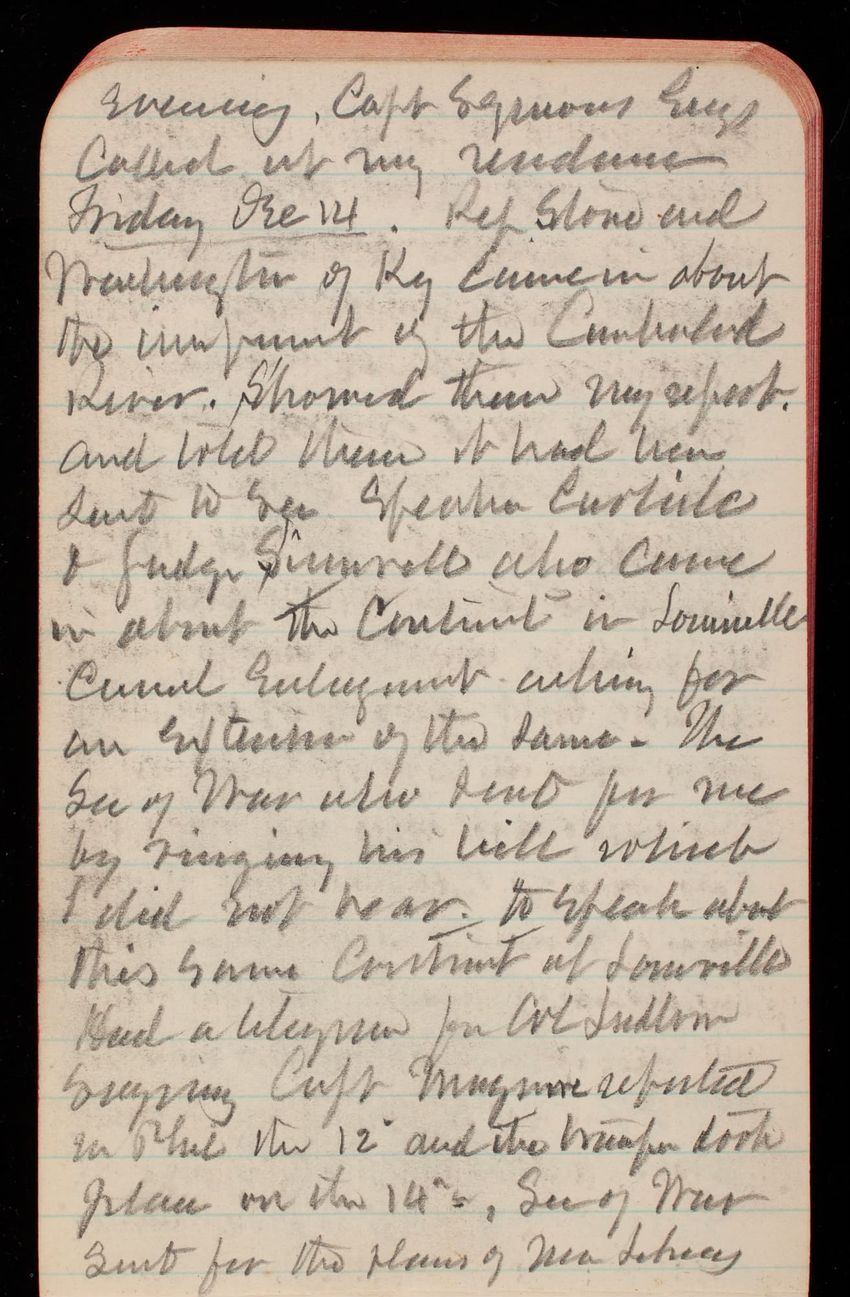 evening, Capt Symons Engs
Called at my residence
Friday Dec 14. Rep Stone and
Washington of Ky came in about
the improvement of the Cumberland
River. Showed them my report.
and told them it had been
sent to Sec Speaker Carlisle
& Judge who came
in about the Contract in Louisville
Canal Enlargement asking for
an Extension of the same. The
Sec of War who sent for me
by ringing his bell which
I did not hear. to speak about
this same Contract at Louisville
Had a telegram from Col Ludlow
saying Capt reported
in Phil the 12" and the transfer took
place on the 14th, Sec of War
Sent for the plans of